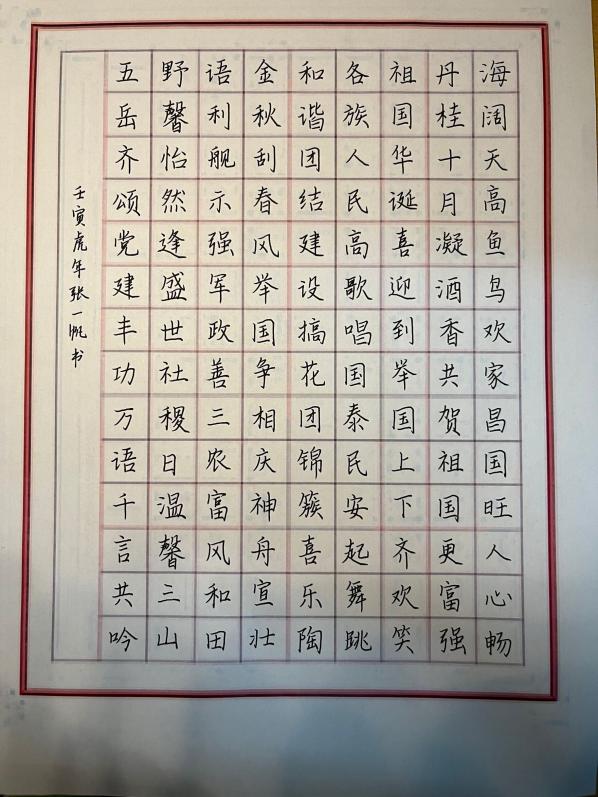 海阔天高鱼鸟欢家昌国旺人心畅
丹桂十月凝酒香共贺祖国更富强
祖国华诞喜迎到举国上下齐欢笑
各族人民高歌唱国泰民安起舞跳
和谐团结建设搞花团锦簇喜乐陶
金秋刮春风举国争相庆神舟宣壮
语利舰示强军政善三农富风和田
野馨怡然逢盛世社稷日温馨三山
五岳齐颂党建丰功万语千言共吟
壬寅虎年张一帆书